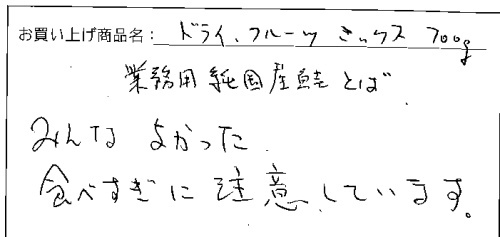 お買い上げ商品名： ドライ、フルーツ ミックス 700g
業務用 純国産鮭とば
みんな よかった
食べすぎに 注意しています。